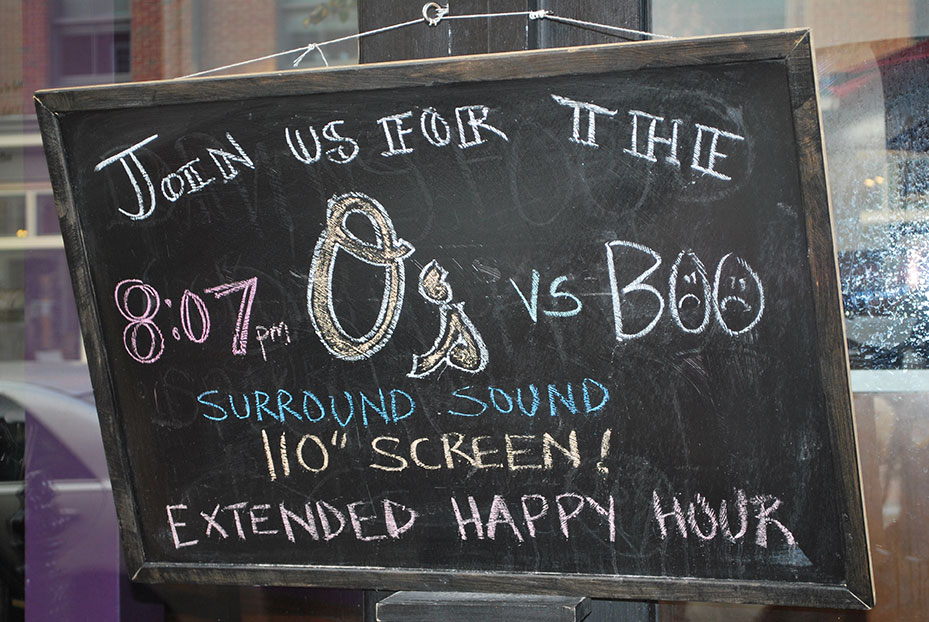 JOIN US FOR THE
8:07 pm O's VS BOO
SURROUND SOUND
110" SCREEN!
EXTENDED HAPPY HOUR